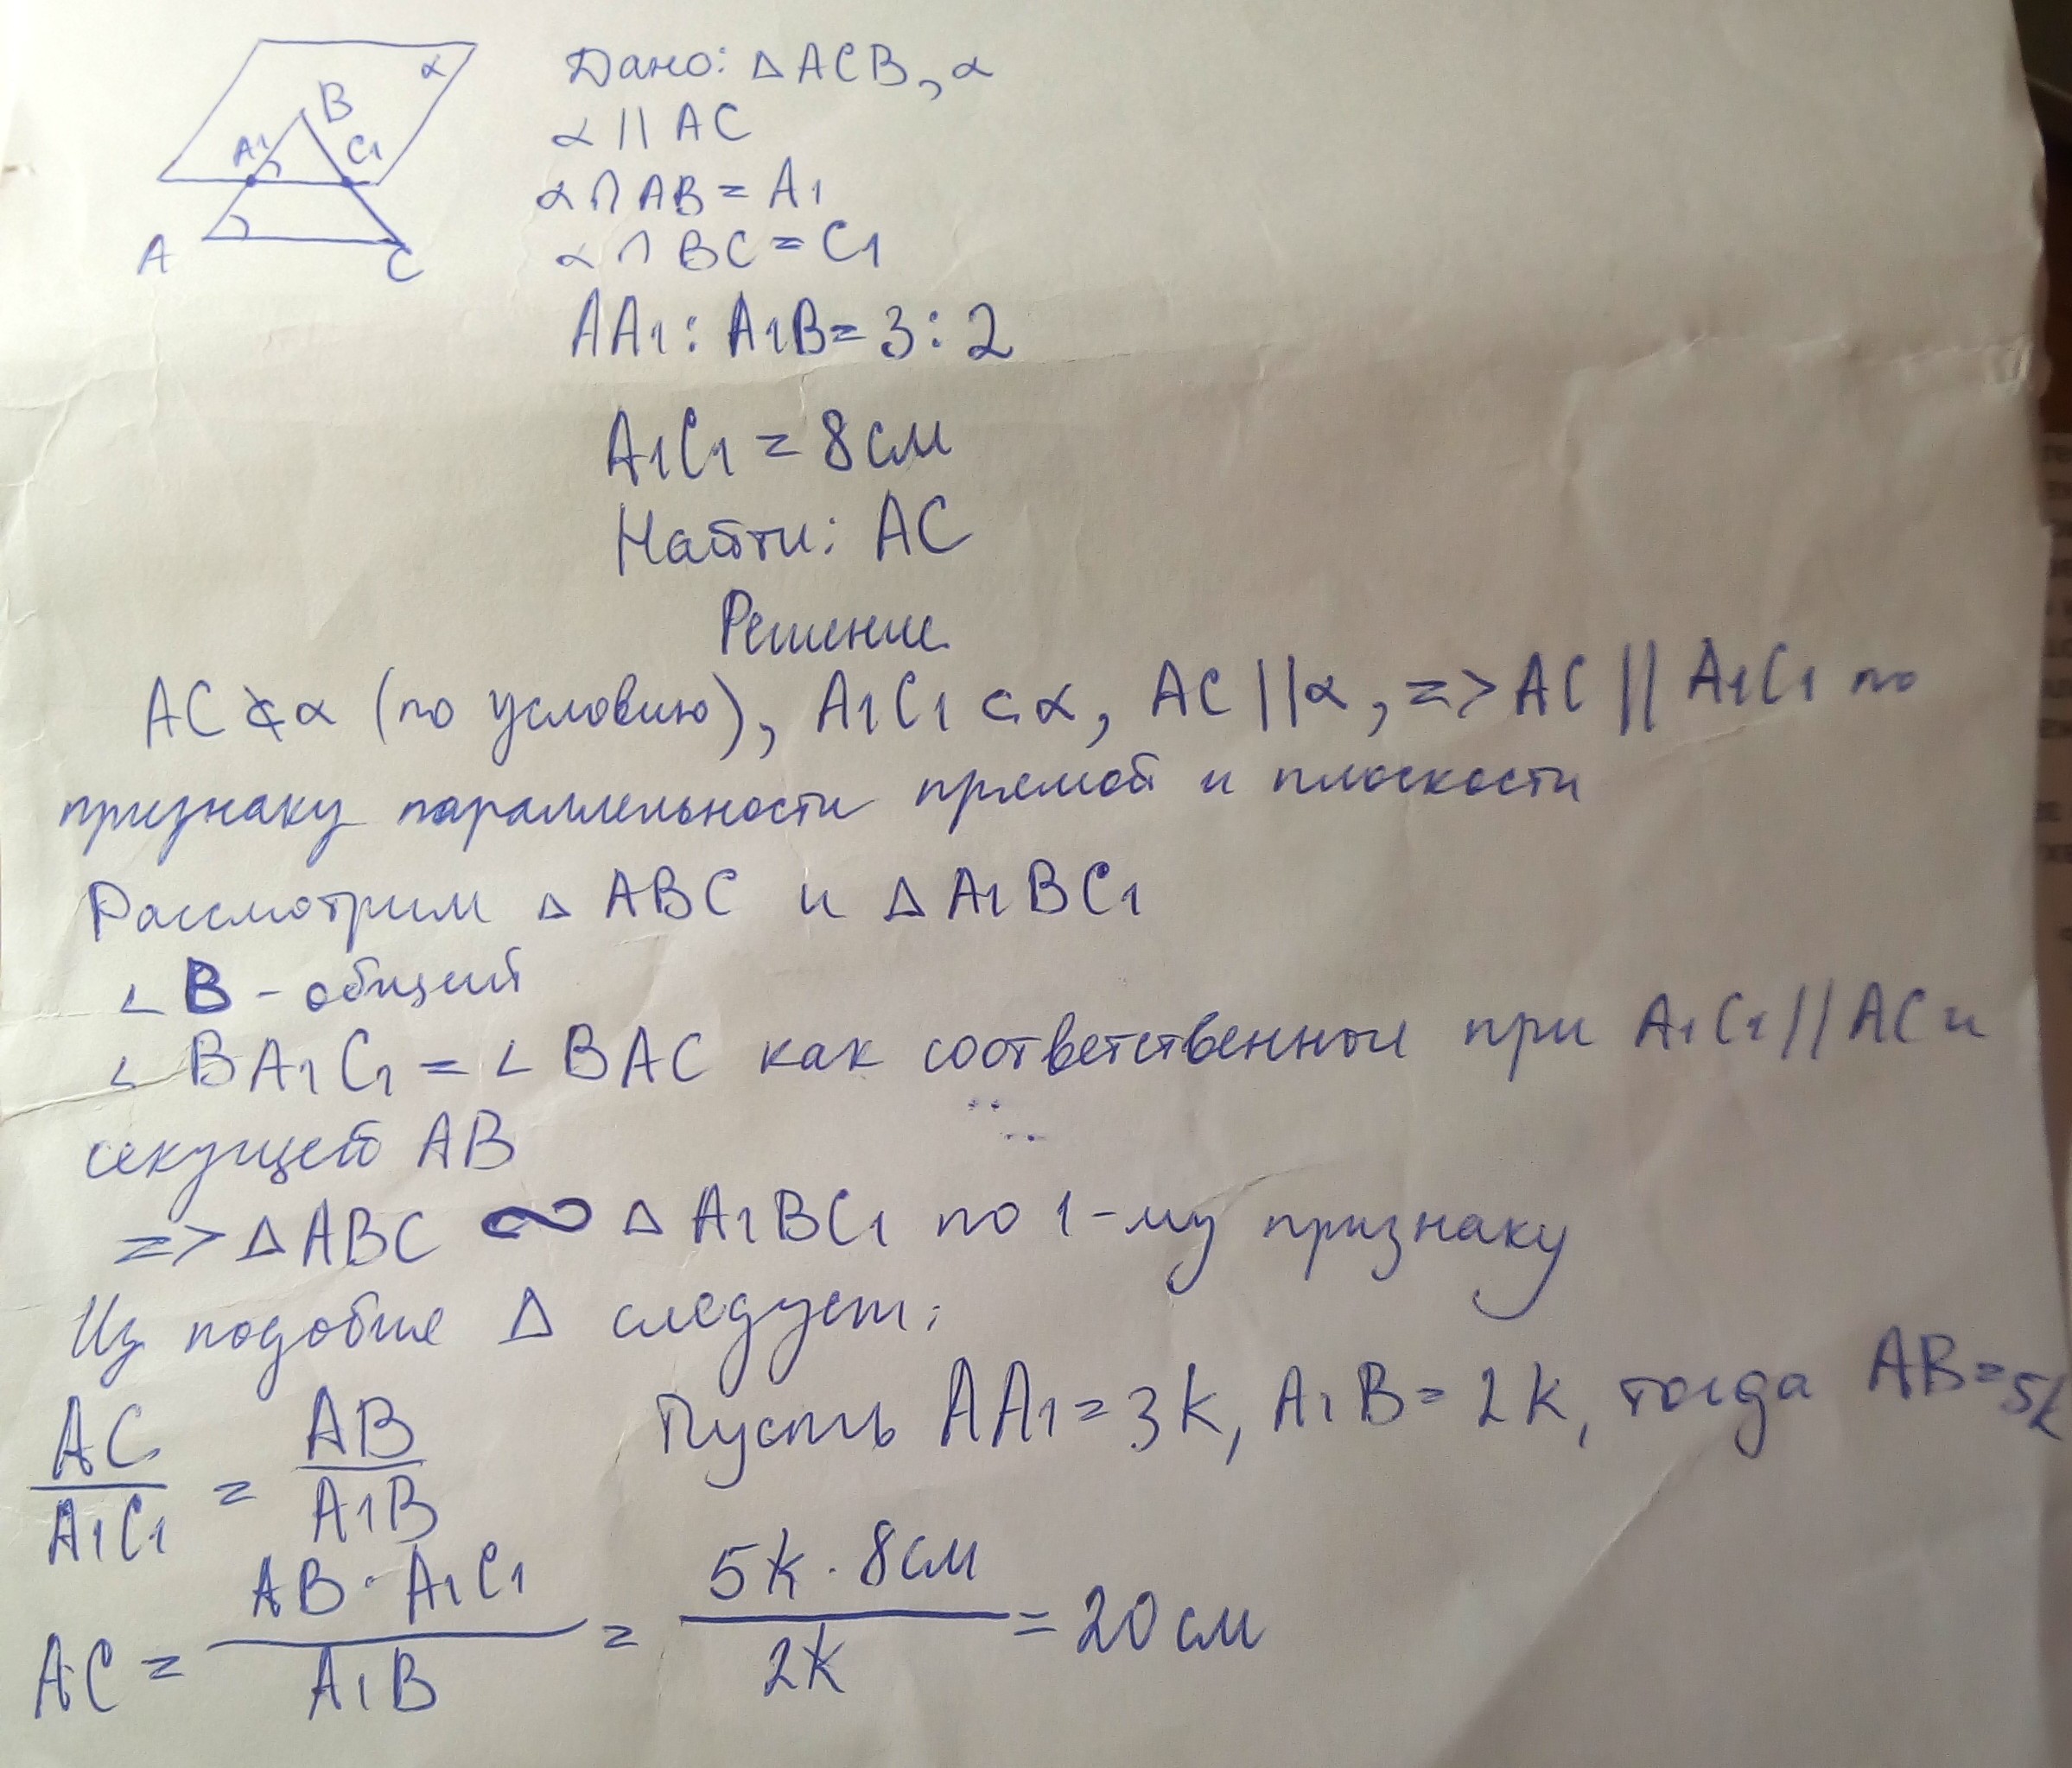 α
B
A₁ C₁
A C
Дано: △ACB, α
α || AC
α ∩ AB = A₁
α ∩ BC = C₁
AA₁ : A₁B = 3 : 2
A₁C₁ = 8 см
Найти: AC
Решение
AC ⊄ α (по условию), A₁C₁ ⊂ α, AC || α, => AC || A₁C₁ по
признаку параллельности прямой и плоскости
Рассмотрим △ ABC и △ A₁BC₁
∠ B - общий
∠ BA₁C₁ = ∠ BAC как соответственные при A₁C₁ || AC и
секущей AB
=> △ ABC ∞ △ A₁BC₁ по 1-му признаку
Из подобия △ следует:
AC/A₁C₁ = AB/A₁B Пусть AA₁ = 3k, A₁B = 2k, тогда AB = 5k
AC = AB · A₁C₁/A₁B = 5k · 8см/2k = 20 см